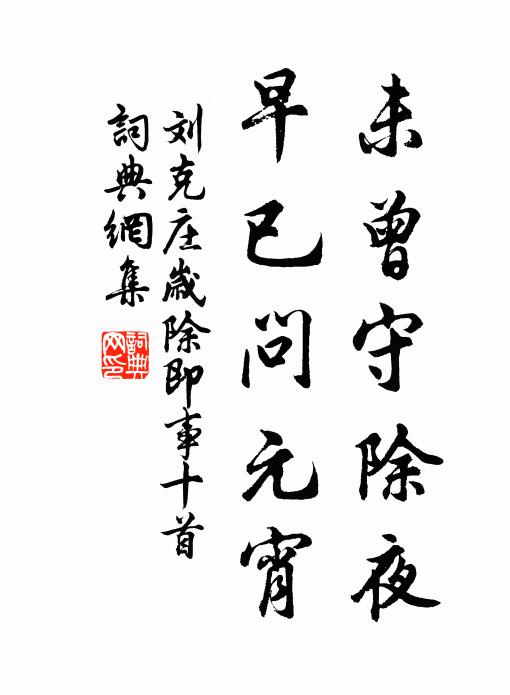 未曾守除夜
早已問元宵
刘克庄歲除即事十首
詞典網集
詞典網印